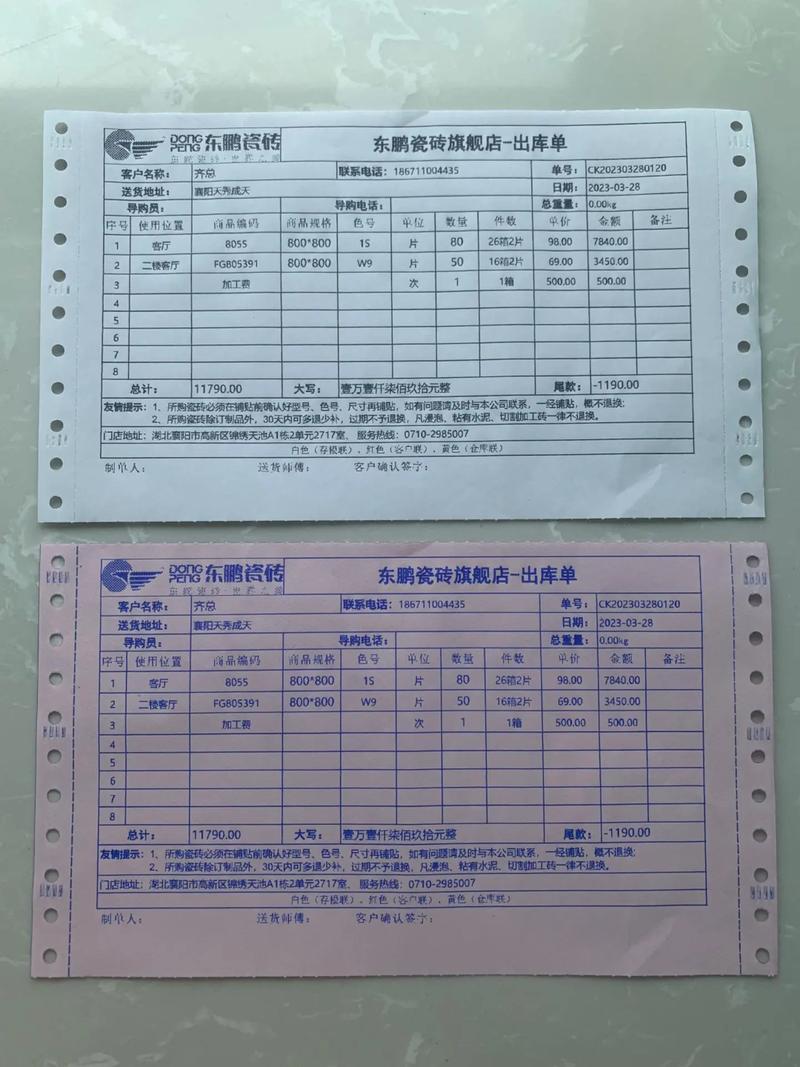 DONG PENG 东鹏瓷砖 东鹏瓷砖旗舰店-出库单
东鹏瓷砖·世界之美
客户名称： 齐总 联系电话： 186711004435 单号： CK202303280120
送货地址： 襄阳天秀成天 日期： 2023-03-28
导购员： 导购电话： 总重量： 0.00kg
序号 使用位置 商品编码 商品规格 色号 单位 数量 件数 单价 金额 备注
1 客厅 8055 800*800 1S 片 80 26箱2片 98.00 7840.00
2 二楼客厅 FG805391 800*800 W9 片 50 16箱2片 69.00 3450.00
3 加工费 次 1 1箱 500.00 500.00
4
5
6
7
8
总计： 11790.00 大写： 壹万壹仟柒佰玖拾元整 尾款： -1190.00
友情提示：1、所购瓷砖必须在铺贴前确认好型号、色号、尺寸再铺贴，如有问题请及时与本公司联系，一经铺贴，概不退换；
2、所购瓷砖除订制品外，30天内可多退少补，过期不予退换，凡浸泡、粘有水泥、切割加工砖一律不退换。
门店地址：湖北襄阳市高新区锦绣天池A1栋2单元2717室、 服务热线：0710-2985007
白色（存根联）、红色（客户联）、黄色（仓库联）
制单人： 送货师傅： 客户确认签字：
DONG PENG 东鹏瓷砖 东鹏瓷砖旗舰店-出库单
东鹏瓷砖·世界之美
客户名称： 齐总 联系电话： 186711004435 单号： CK202303280120
送货地址： 襄阳天秀成天 日期： 2023-03-28
导购员： 导购电话： 总重量： 0.00kg
序号 使用位置 商品编码 商品规格 色号 单位 数量 件数 单价 金额 备注
1 客厅 8055 800*800 1S 片 80 26箱2片 98.00 7840.00
2 二楼客厅 FG805391 800*800 W9 片 50 16箱2片 69.00 3450.00
3 加工费 次 1 1箱 500.00 500.00
4
5
6
7
8
总计： 11790.00 大写： 壹万壹仟柒佰玖拾元整 尾款： -1190.00
友情提示：1、所购瓷砖必须在铺贴前确认好型号、色号、尺寸再铺贴，如有问题请及时与本公司联系，一经铺贴，概不退换；
2、所购瓷砖除订制品外，30天内可多退少补，过期不予退换，凡浸泡、粘有水泥、切割加工砖一律不退换。
门店地址：湖北襄阳市高新区锦绣天池A1栋2单元2717室、 服务热线：0710-2985007
白色（存根联）、红色（客户联）、黄色（仓库联）
制单人： 送货师傅： 客户确认签字：